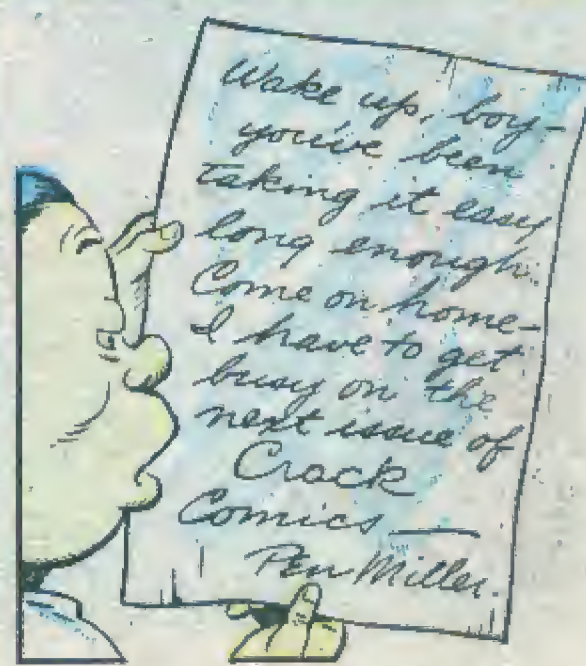 Wake up, boy-
you've been
taking it easy
long enough.
Come on home-
I have to get
busy on the
next issue of
Crack
Comics—
Pen Miller.